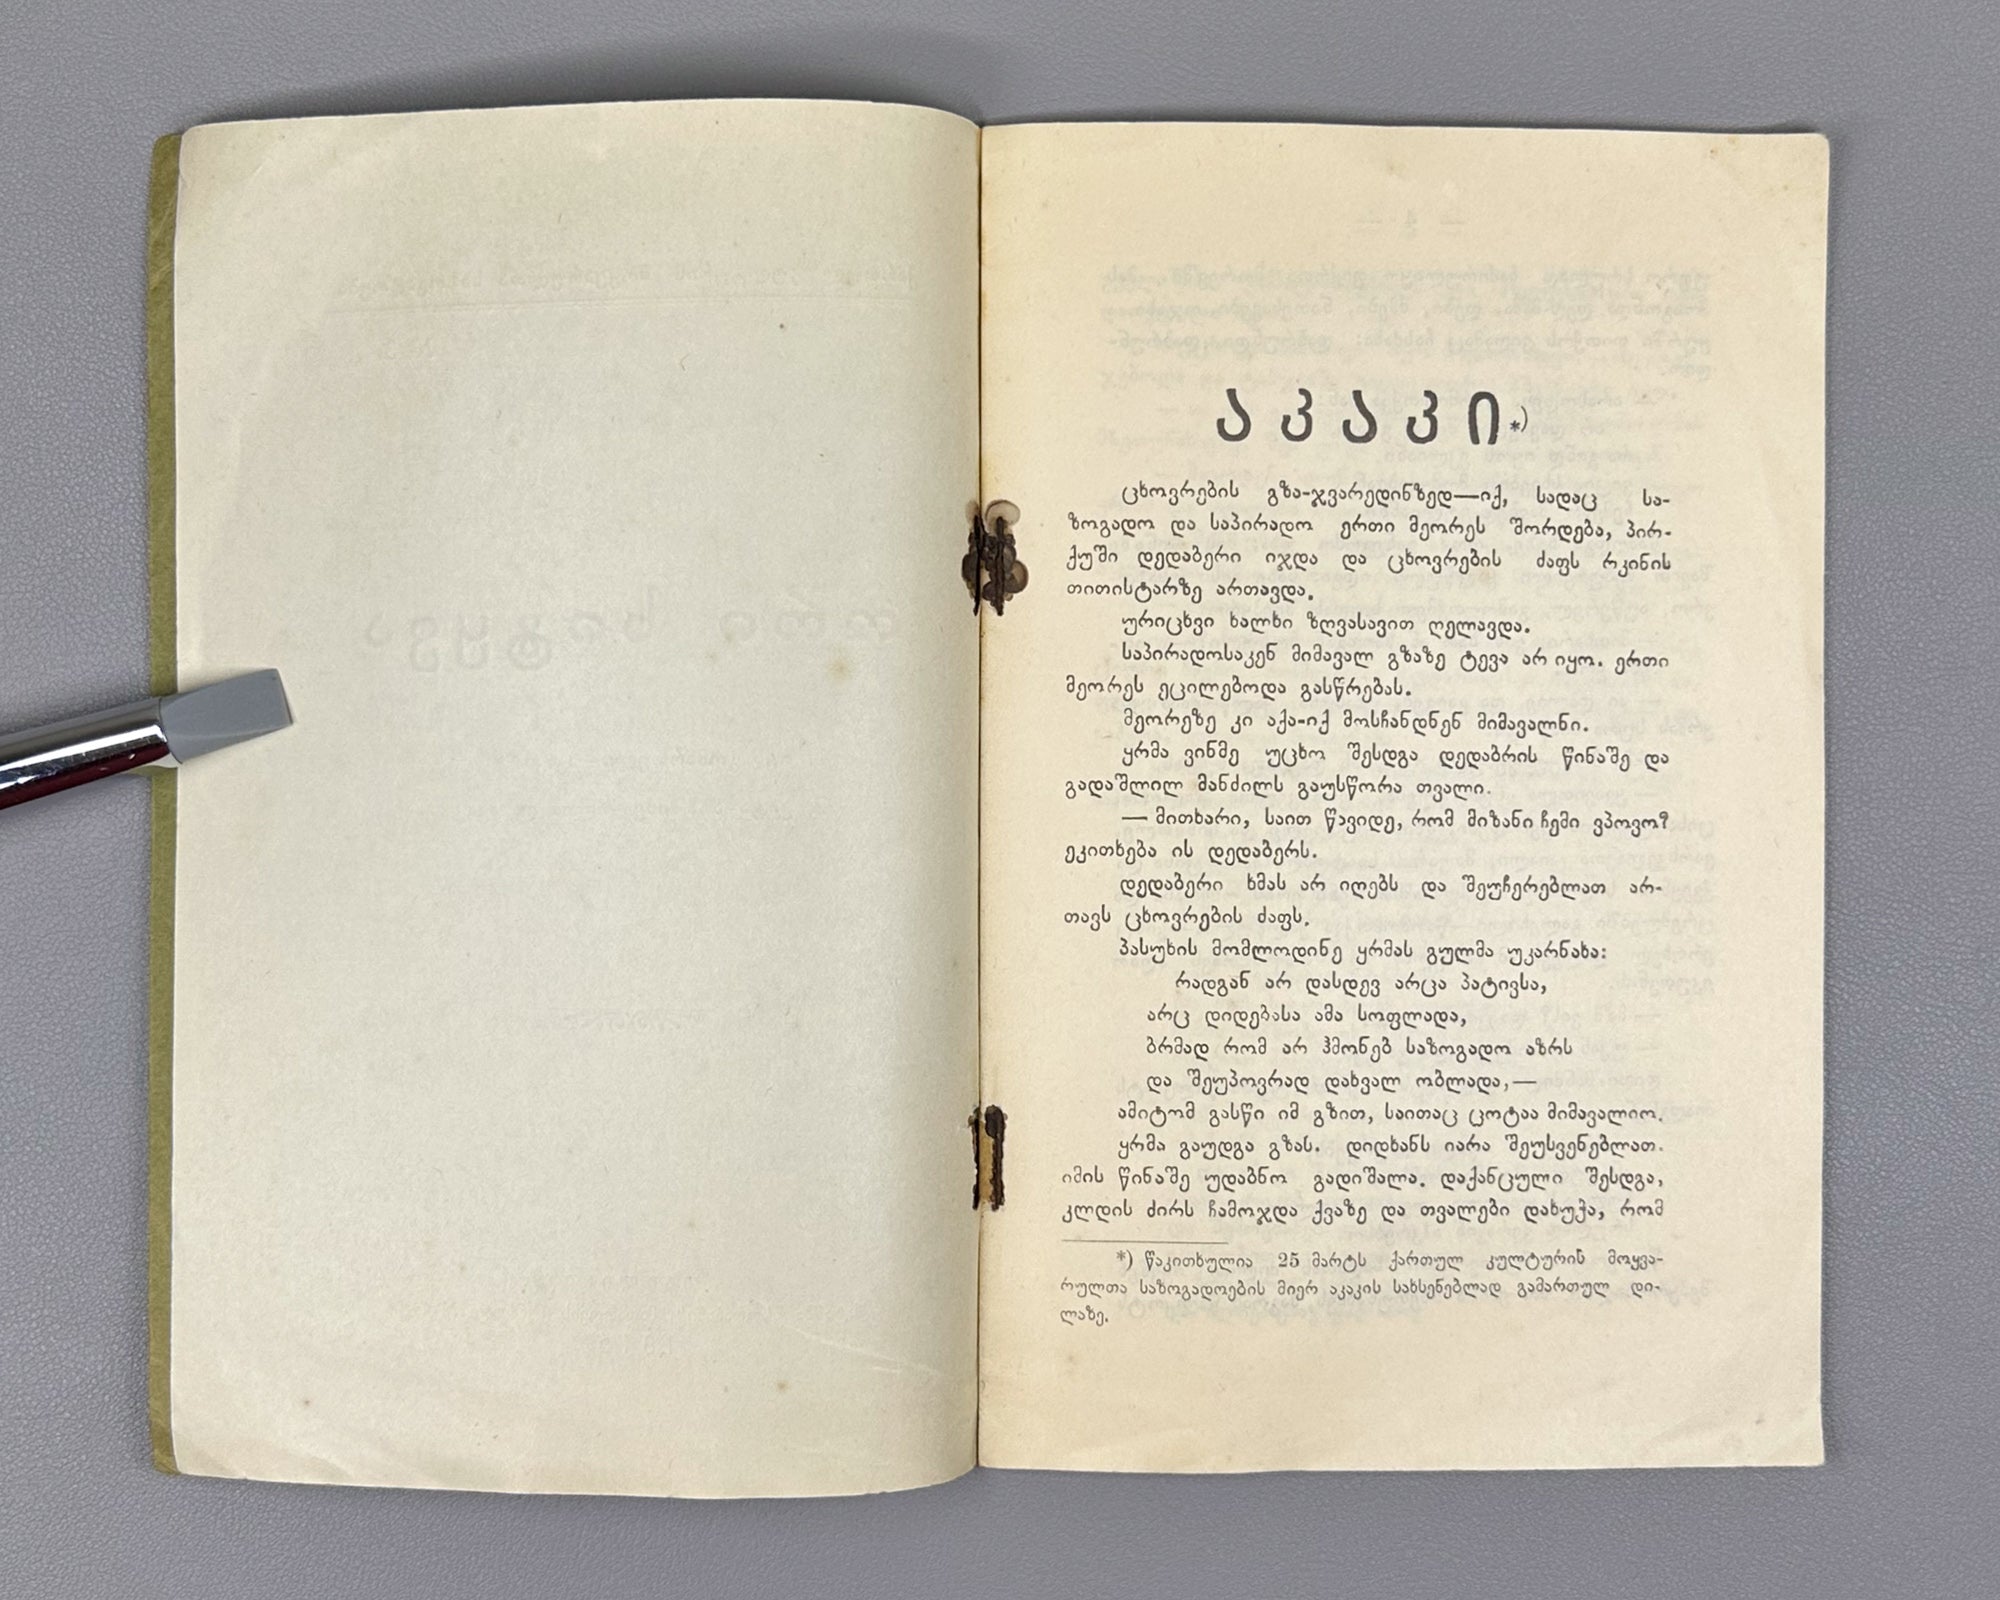 აკაკი*)
ცხოვრების გზა-ჯვარედინზედ—იქ, სადაც სა-
ზოგადო და საპირადო ერთი მეორეს შორდება, პირ-
ქუში დედაბერი იჯდა და ცხოვრების ძაფს რკინის
თითისტარზე ართავდა.
ურიცხვი ხალხი ზღვასავით ღელავდა.
საპირადოსაკენ მიმავალ გზაზე ტევა არ იყო. ერთი
მეორეს ეცილებოდა გასწრებას.
მეორეზე კი აქა-იქ მოსჩანდნენ მიმავალნი.
ყრმა ვინმე უცხო შესდგა დედაბრის წინაშე და
გადაშლილ მანძილს გაუსწორა თვალი.
— მითხარი, საით წავიდე, რომ მიზანი ჩემი ვპოვო?
ეკითხება ის დედაბერს.
დედაბერი ხმას არ იღებს და შეუჩერებლათ არ-
თავს ცხოვრების ძაფს.
პასუხის მომლოდინე ყრმას გულმა უკარნახა:
რადგან არ დასდევ არცა პატივსა,
არც დიდებასა ამა სოფლადა,
ბრმად რომ არ ჰმონებ საზოგადო აზრს
და შეუპოვრად დახვალ ობლადა,—
ამიტომ გასწი იმ გზით, საითაც ცოტაა მიმავალიო.
ყრმა გაუდგა გზას. დიდხანს იარა შეუსვენებლათ.
იმის წინაშე უდაბნო გადიშალა. დაქანცული შესდგა,
კლდის ძირს ჩამოჯდა ქვაზე და თვალები დახუჭა, რომ
*) წაკითხულია 25 მარტს ქართულ კულტურის მოყვა-
რულთა საზოგადოების მიერ აკაკის სახსენებლად გამართულ დი-
ლაზე.